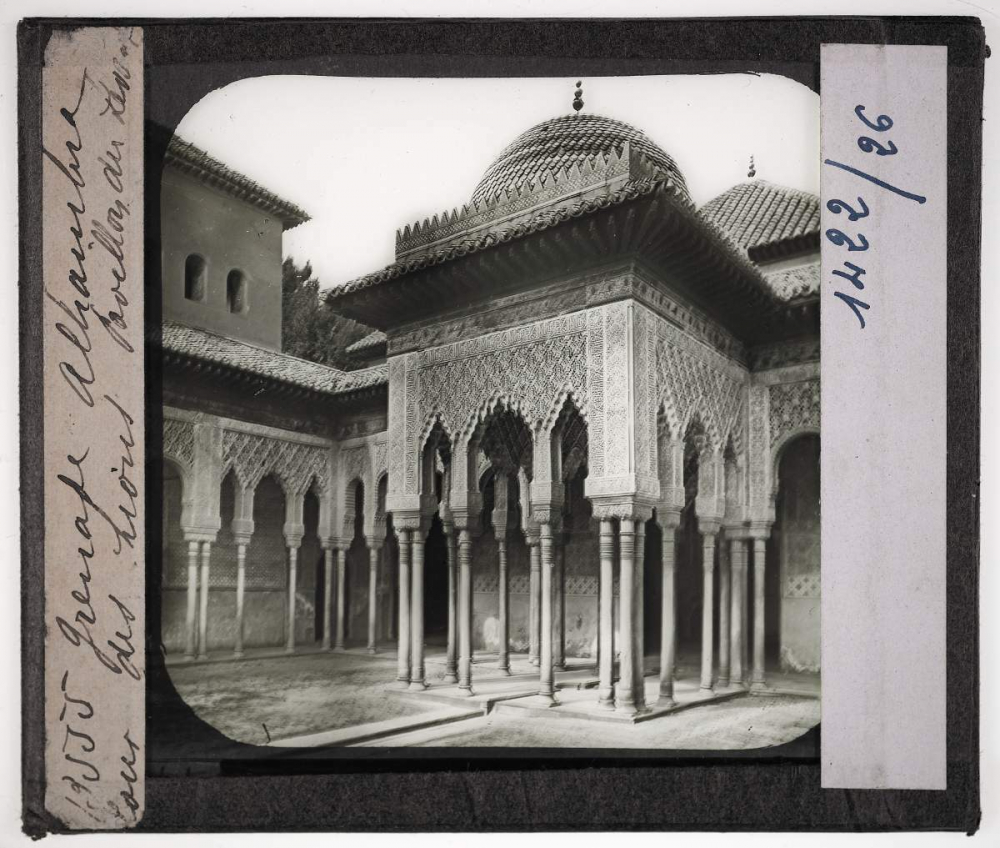 1355 Grenade Alhambra
Cour des Lions. pavillon du
1422/26